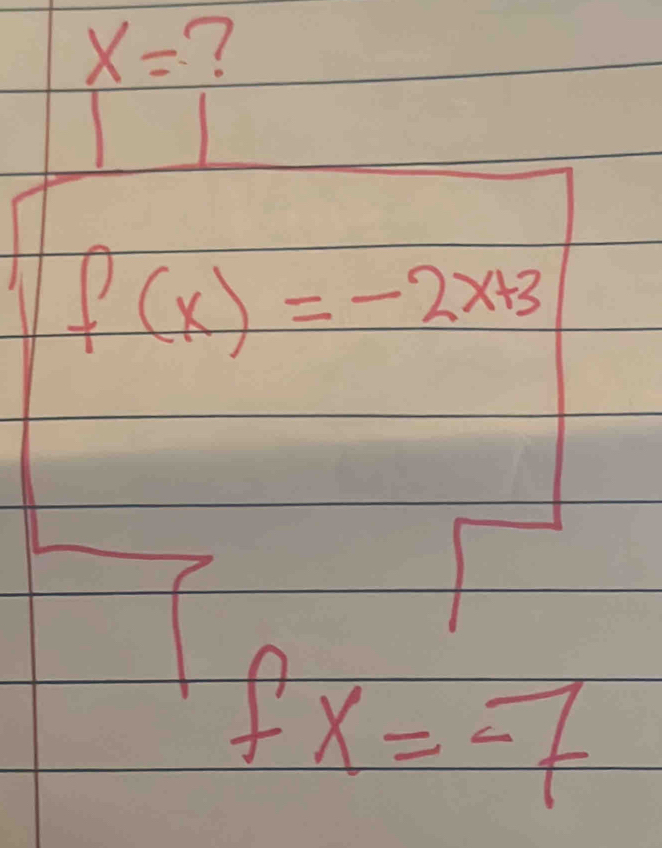 x = ?
f(x) = -2x+3
fx = -7